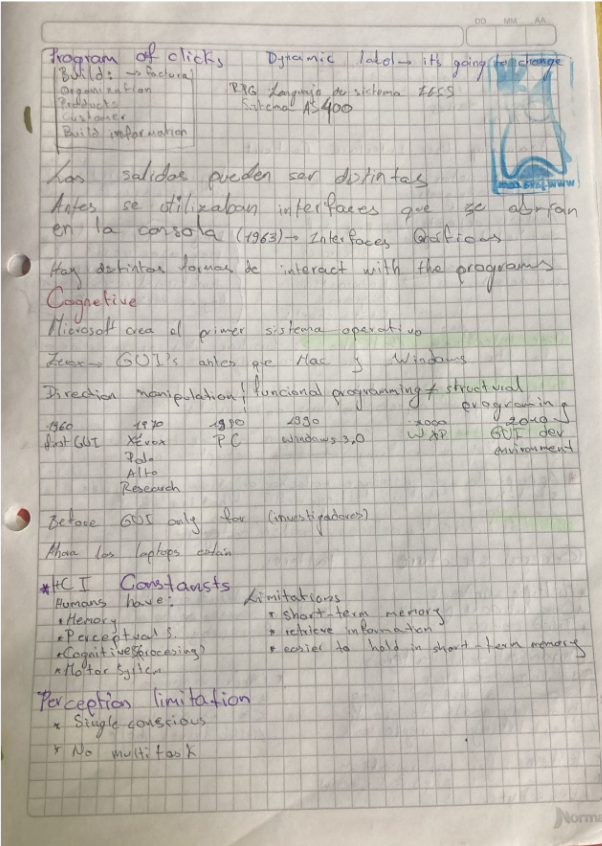 DD MM AA
Program of clicks Dynamic label → it's going to change
Build: → factura
Organization
Products
Customer
Build information
RPG Lenguaje de sistema
Sistema AS400
Las salidas pueden ser distintas
Antes se utilizaban interfaces que se abrían
en la consola (1963) → Interfaces Gráficas
Hay distintas formas de interact with the programs
Cognetive
Microsoft crea el primer sistema operativo
GUI's antes que Mac y Windows
Direction manipulation! funcional programming ≠ structural
programing
1960 1970 1980 1990 2000 2019
first GUI Xerox PC Windows 3,0 WAP GUI dev
Palo environment
Alto
Research
Before GUI only for (investigadores)
Ahora las laptops
*HCI Constansts
Humans have: Limitations
* Memory * short-term memory
* Perceptual S. * retrieve information
* Cognitive (processing) * easier to hold in short-term memory
* Motor System
Perception limitation
* Single conscious
* No multitask
Norma